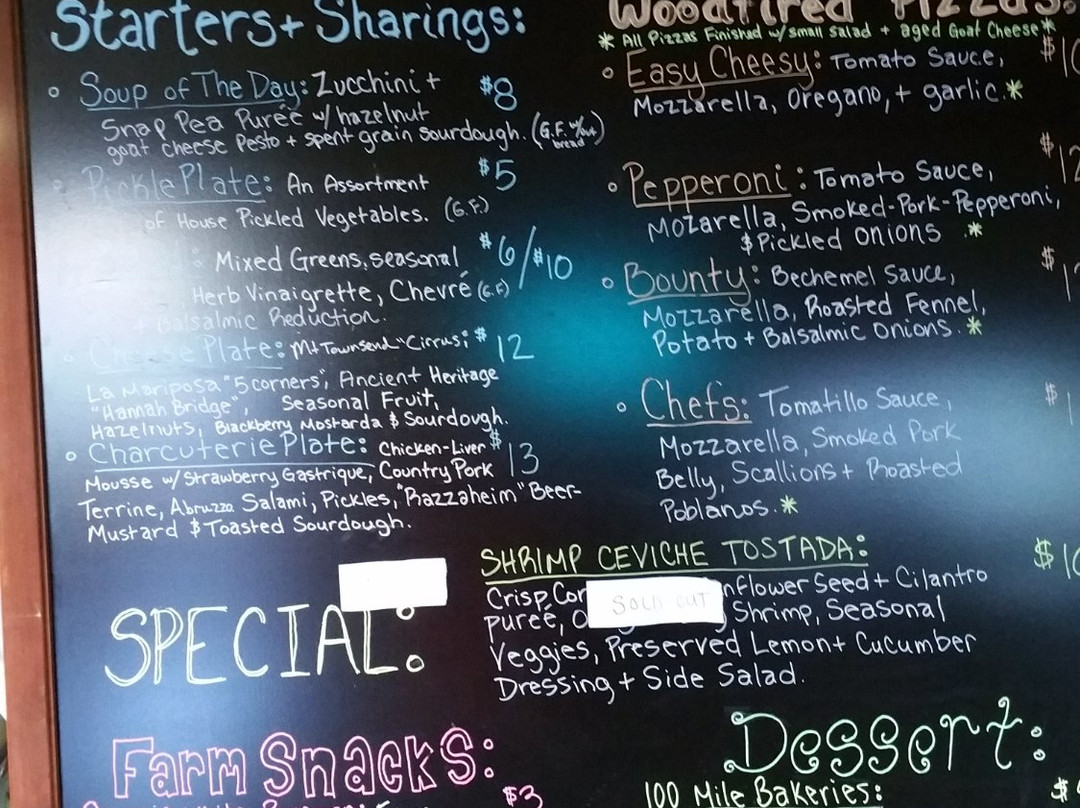 Starters + Sharings:
Soup of The Day: Zucchini + $8
Snap Pea Pureé w/ hazelnut
goat cheese Pesto + spent grain sourdough. (G.F. w/out bread)
Pickle Plate: An Assortment $5
of House Pickled Vegetables. (G.F.)
Mixed Greens, seasonal $6/$10
Herb Vinaigrette, Chevré (G.F)
+ Balsalmic Reduction.
Cheese Plate: Mt Townsend "Cirrus", $12
La Mariposa "5 corners", Ancient Heritage
"Hannah Bridge", Seasonal Fruit,
Hazelnuts, Blackberry Mostarda & Sourdough.
Charcuterie Plate: Chicken-Liver $13
Mousse w/ Strawberry Gastrique, Country Pork
Terrine, Abruzzo Salami, Pickles, "Razzaheim" Beer-
Mustard & Toasted Sourdough.
Woodfired Pizzas:
* All Pizzas Finished w/ small salad + aged Goat Cheese *
Easy Cheesy: Tomato Sauce,
Mozzarella, Oregano, + garlic. *
Pepperoni: Tomato Sauce,
Mozarella, Smoked-Pork-Pepperoni,
& Pickled Onions *
Bounty: Bechemel Sauce,
Mozzarella, Roasted Fennel,
Potato + Balsalmic Onions. *
Chefs: Tomatillo Sauce,
Mozzarella, Smoked Pork
Belly, Scallions + Roasted
Poblanos. *
SPECIAL:
SHRIMP CEVICHE TOSTADA:
Crisp Cor nflower Seed + Cilantro
Pureé, O SOLD OUT Shrimp, Seasonal
Veggies, Preserved Lemon + Cucumber
Dressing + Side Salad.
Farm Snacks:
$3
Dessert:
100 Mile Bakeries: $